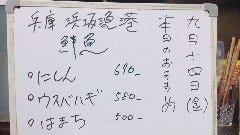 九月十四日(金)
本日のおすすめ
兵庫 浜坂漁港
鮮魚
○にしん 690-
○ウスバハギ 580-
○はまち 500-